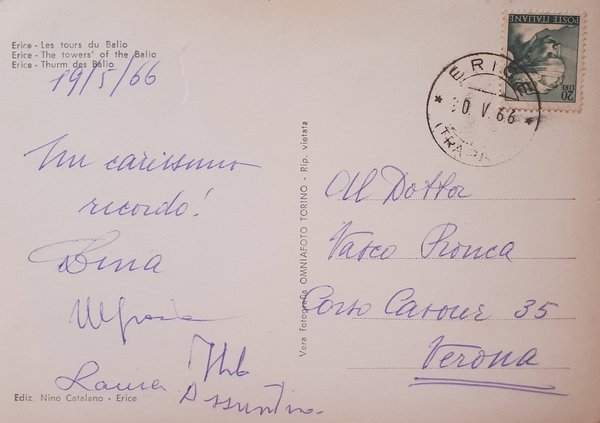 Erice - Les tours du Balio
Erice - The towers' of the Balio
Erice - Thurm des Balio
19/5/66
Un carissimo
ricordo!
Dina
Laura
Assuntina
Ediz. Nino Catalano - Erice
Vera fotografia OMNIAFOTO TORINO - Rip. vietata
POSTE ITALIANE
20 LIRE
ERICE
0. V. 66
(TRAP
Al Dottor
Vasco Ronca
Corso Cavour 35
Verona